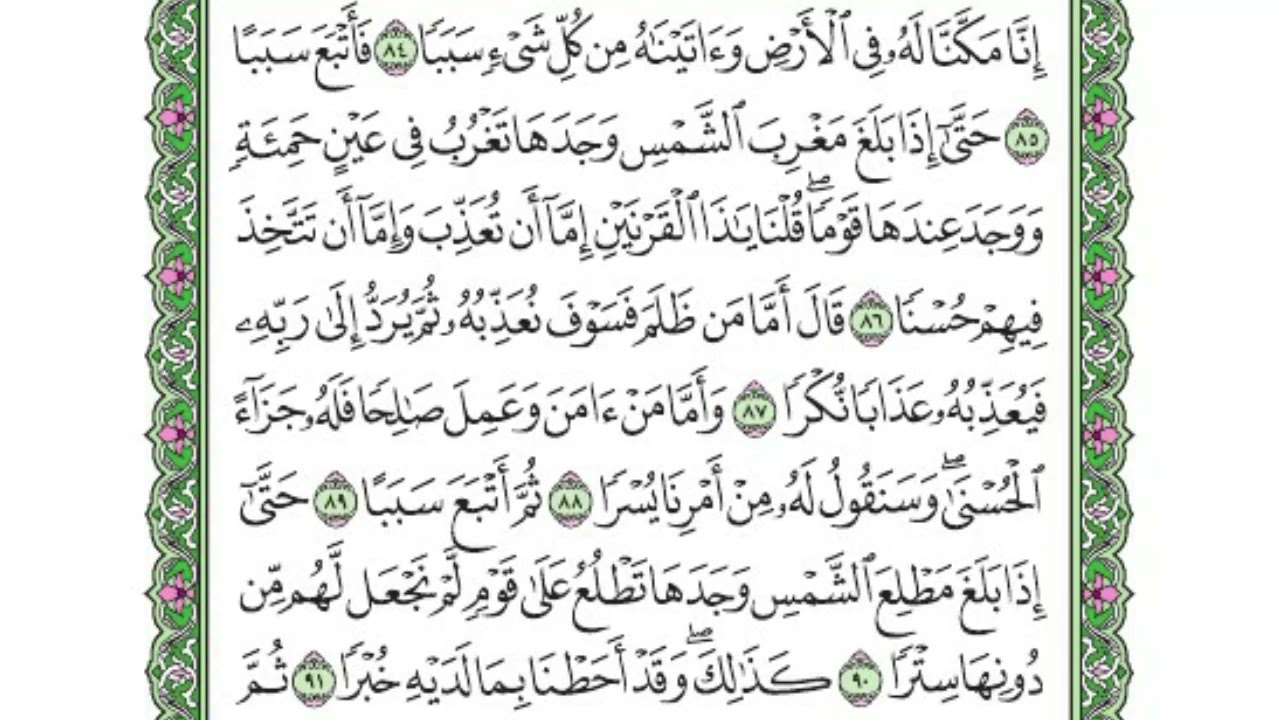 إِنَّا مَكَّنَّا لَهُۥ فِى ٱلْأَرْضِ وَءَاتَيْنَٰهُ مِن كُلِّ شَىْءٍ سَبَبًا ٨٤ فَأَتْبَعَ سَبَبًا
٨٥ حَتَّىٰٓ إِذَا بَلَغَ مَغْرِبَ ٱلشَّمْسِ وَجَدَهَا تَغْرُبُ فِى عَيْنٍ حَمِئَةٍ
وَوَجَدَ عِندَهَا قَوْمًا ۖ قُلْنَا يَٰذَا ٱلْقَرْنَيْنِ إِمَّآ أَن تُعَذِّبَ وَإِمَّآ أَن تَتَّخِذَ
فِيهِمْ حُسْنًا ٨٦ قَالَ أَمَّا مَن ظَلَمَ فَسَوْفَ نُعَذِّبُهُۥ ثُمَّ يُرَدُّ إِلَىٰ رَبِّهِۦ
فَيُعَذِّبُهُۥ عَذَابًا نُّكْرًا ٨٧ وَأَمَّا مَنْ ءَامَنَ وَعَمِلَ صَٰلِحًا فَلَهُۥ جَزَآءً
ٱلْحُسْنَىٰ ۖ وَسَنَقُولُ لَهُۥ مِنْ أَمْرِنَا يُسْرًا ٨٨ ثُمَّ أَتْبَعَ سَبَبًا ٨٩ حَتَّىٰٓ
إِذَا بَلَغَ مَطْلِعَ ٱلشَّمْسِ وَجَدَهَا تَطْلُعُ عَلَىٰ قَوْمٍ لَّمْ نَجْعَل لَّهُم مِّن
دُونِهَا سِتْرًا ٩٠ كَذَٰلِكَ ۖ وَقَدْ أَحَطْنَا بِمَا لَدَيْهِ خُبْرًا ٩١ ثُمَّ